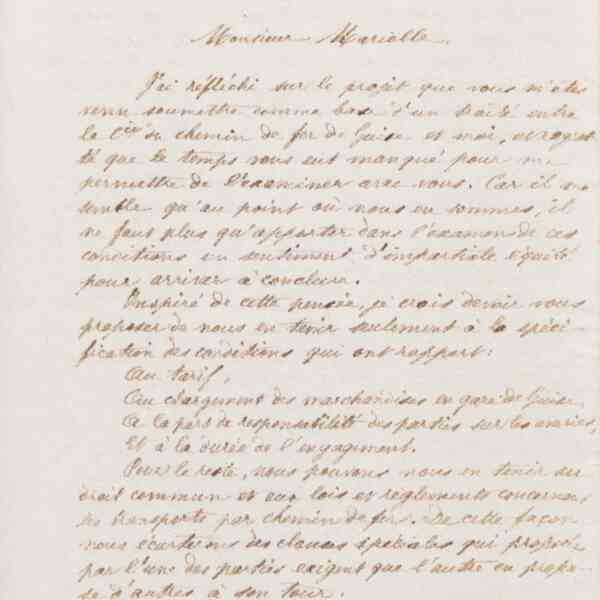 Monsieur Marialle.
J'ai réfléchi sur le projet que vous m'êtes
venu soumettre comme base d'un traité entre
la Cie du chemin de fer de Guise et moi, et regret
té que le temps vous eut manqué pour me
permettre de l'examiner avec vous. Car il me
semble qu'au point où nous en sommes, il
ne faut plus qu'apporter dans l'examen de ces
conditions un sentiment d'impartiale équité
pour arriver à conclure.
Inspiré de cette pensée, je crois devoir vous
proposer de nous en tenir seulement à la spéci-
fication des conditions qui ont rapport:
Au tarif,
Au chargement des marchandises en gare de Guise,
A la part de responsabilité des parties sur les avaries,
Et à la durée de l'engagement.
Pour le reste, nous pouvons nous en tenir au
droit commun et aux lois et règlements concernant
les transports par chemin de fer. De cette façon
nous écarterons des clauses spéciales qui proposées
par l'une des parties exigent que l'autre en propo-
se d'autres à son tour.